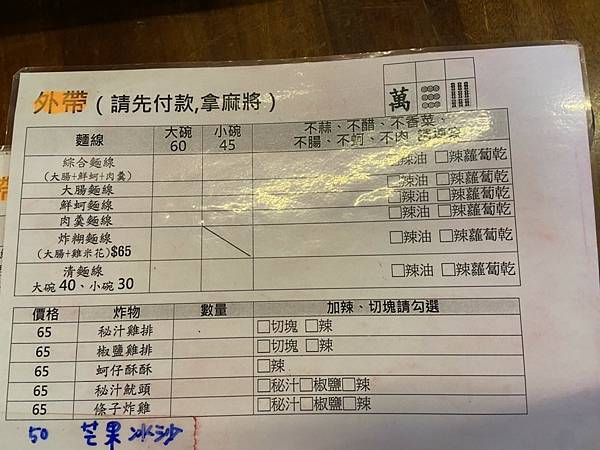 外帶 ( 請先付款,拿麻將 )
萬
麵線 大碗 60 小碗 45 不蒜、不醋、不香菜、
不腸、不蚵、不肉
綜合麵線
(大腸+鮮蚵+肉羹) □辣油 □辣蘿蔔乾
大腸麵線 □辣油 □辣蘿蔔乾
鮮蚵麵線 □辣油 □辣蘿蔔乾
肉羹麵線 □辣油 □辣蘿蔔乾
炸糊麵線
(大腸+雞米花)$65 □辣油 □辣蘿蔔乾
清麵線
大碗 40、小碗 30 □辣油 □辣蘿蔔乾
價格 炸物 數量 加辣、切塊請勾選
65 秘汁雞排 □切塊 □辣
65 椒鹽雞排 □切塊 □辣
65 蚵仔酥酥 □辣
65 秘汁魷頭 □秘汁□椒鹽□辣
65 條子炸雞 □秘汁□椒鹽□辣
50 芒果冰沙